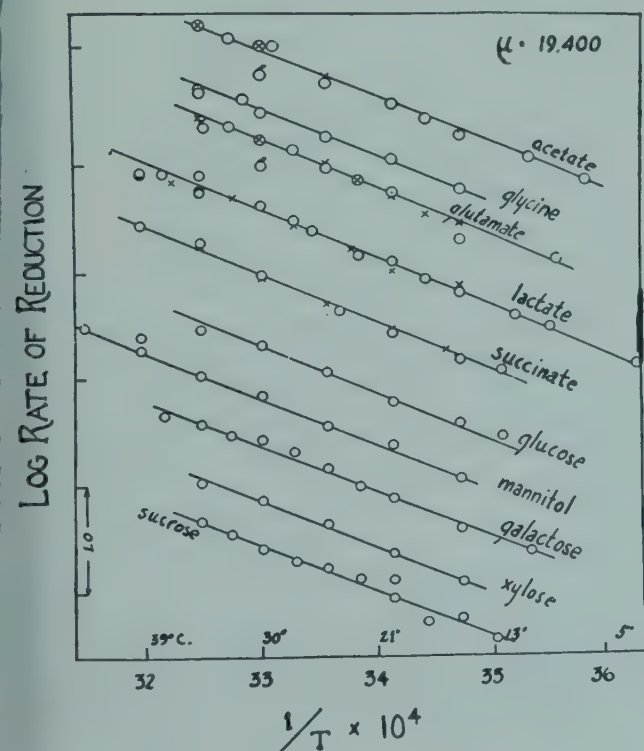 μ = 19.400
LOG RATE OF REDUCTION
acetate
glycine
glutamate
lactate
succinate
glucose
mannitol
galactose
xylose
sucrose
1.0
39°C. 30° 21° 13° 5°
32 33 34 35 36
1/T × 10⁴